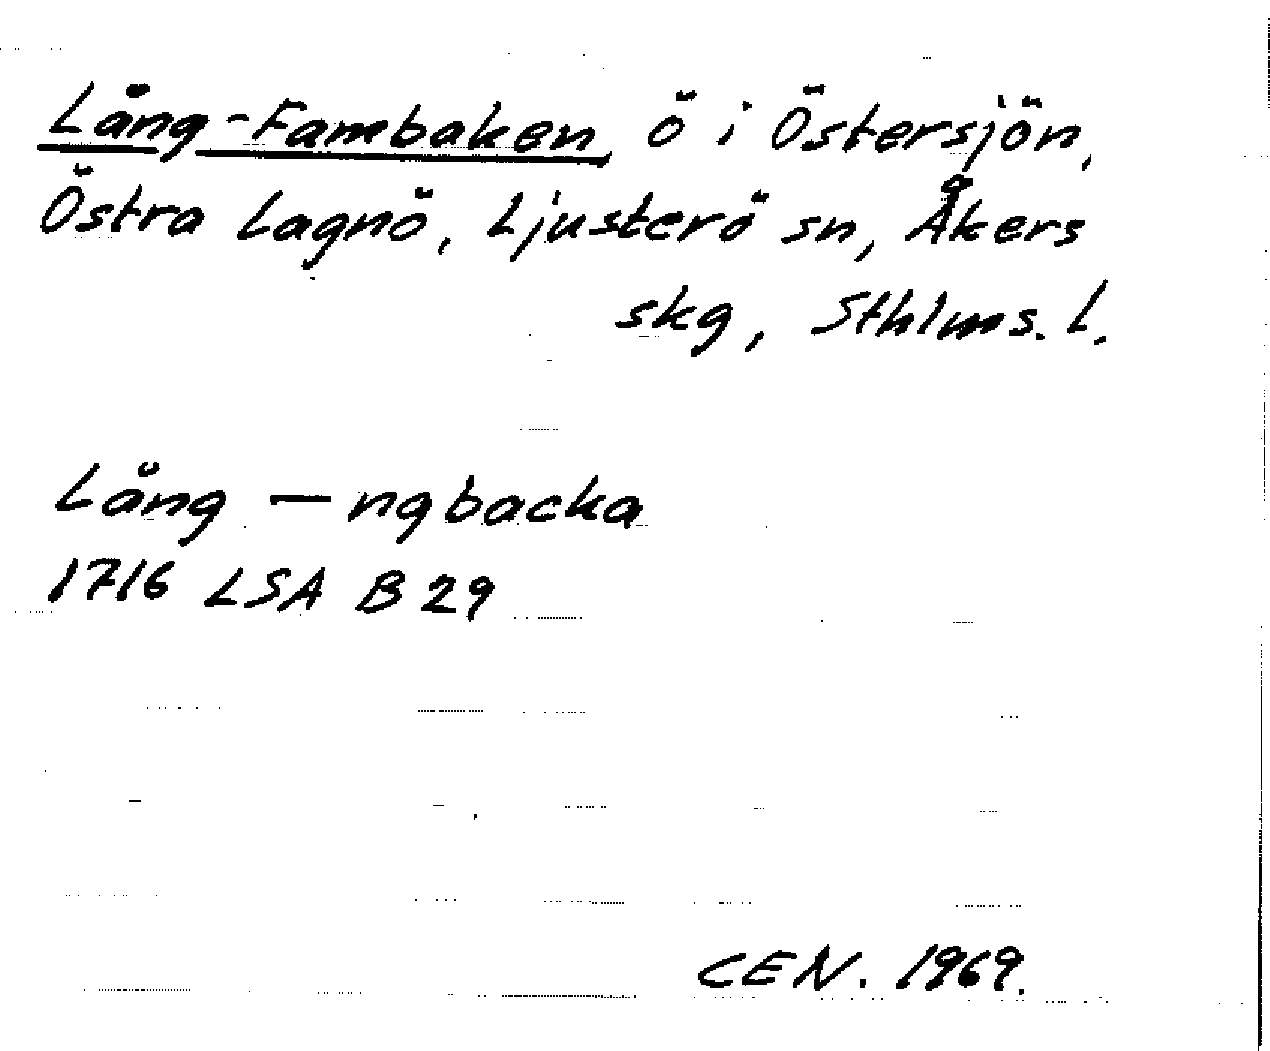 Lång-Fambaken, ö i Östersjön,
Östra Lagnö, Ljusterö sn, Åkers
skg, Sthlms. l.
Lång — ngbacka
1716 LSA B 29
CEN. 1969.